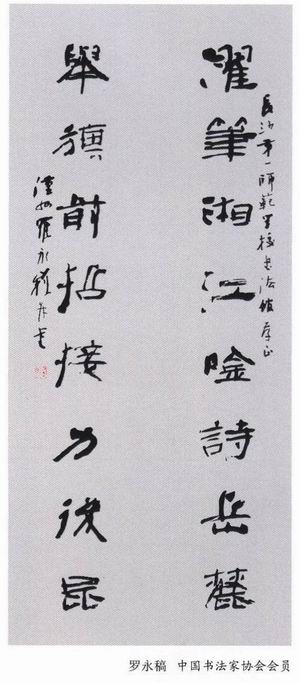 濯筆湘江唫詩岳麓
長沙第一師範學校書法館存正
舉旗前招接力後昆
羅永稿
罗永稿 中国书法家协会会员